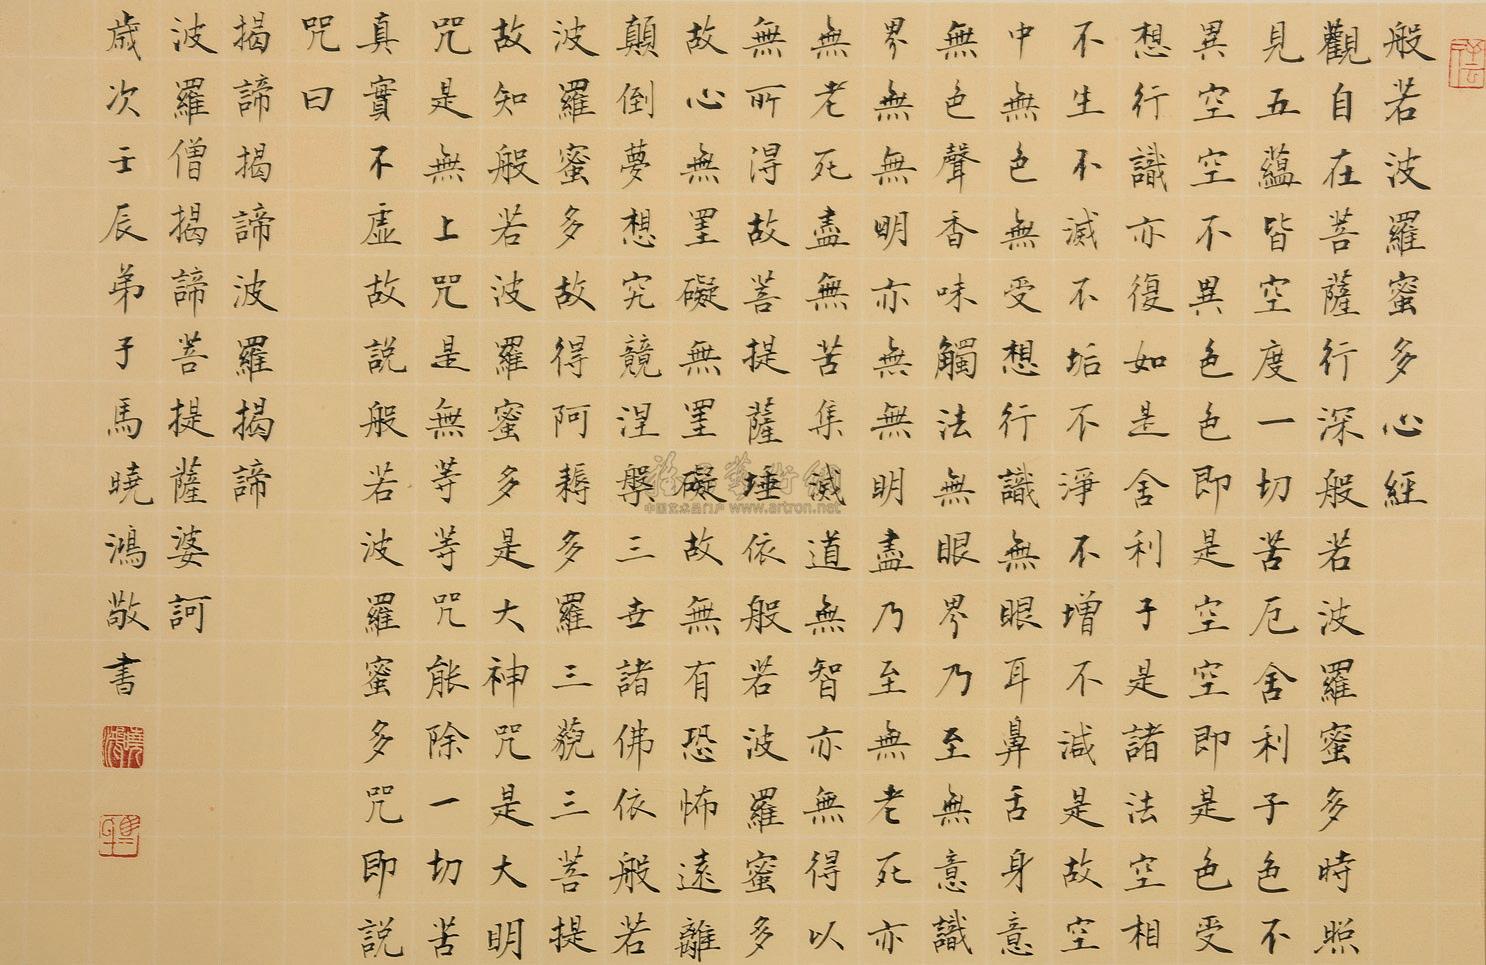 般若波羅蜜多心經
觀自在菩薩行深般若波羅蜜多時照
見五蘊皆空度一切苦厄舍利子色不
異空空不異色色即是空空即是色受
想行識亦復如是舍利子是諸法空相
不生不滅不垢不淨不增不減是故空
中無色無受想行識無眼耳鼻舌身意
無色聲香味觸法無眼界乃至無意識
界無無明亦無無明盡乃至無老死亦
無老死盡無苦集滅道無智亦無得以
無所得故菩提薩埵依般若波羅蜜多
故心無罣礙無罣礙故無有恐怖遠離
顛倒夢想究競涅槃三世諸佛依般若
波羅蜜多故得阿耨多羅三藐三菩提
故知般若波羅蜜多是大神咒是大明
咒是無上咒是無等等咒能除一切苦
真實不虛故說般若波羅蜜多咒即說
咒曰
揭諦揭諦波羅揭諦
波羅僧揭諦菩提薩婆訶
歲次壬辰弟子馬曉鴻敬書
曉鴻
雅昌藝術網
中国艺术品门户 www.artron.net